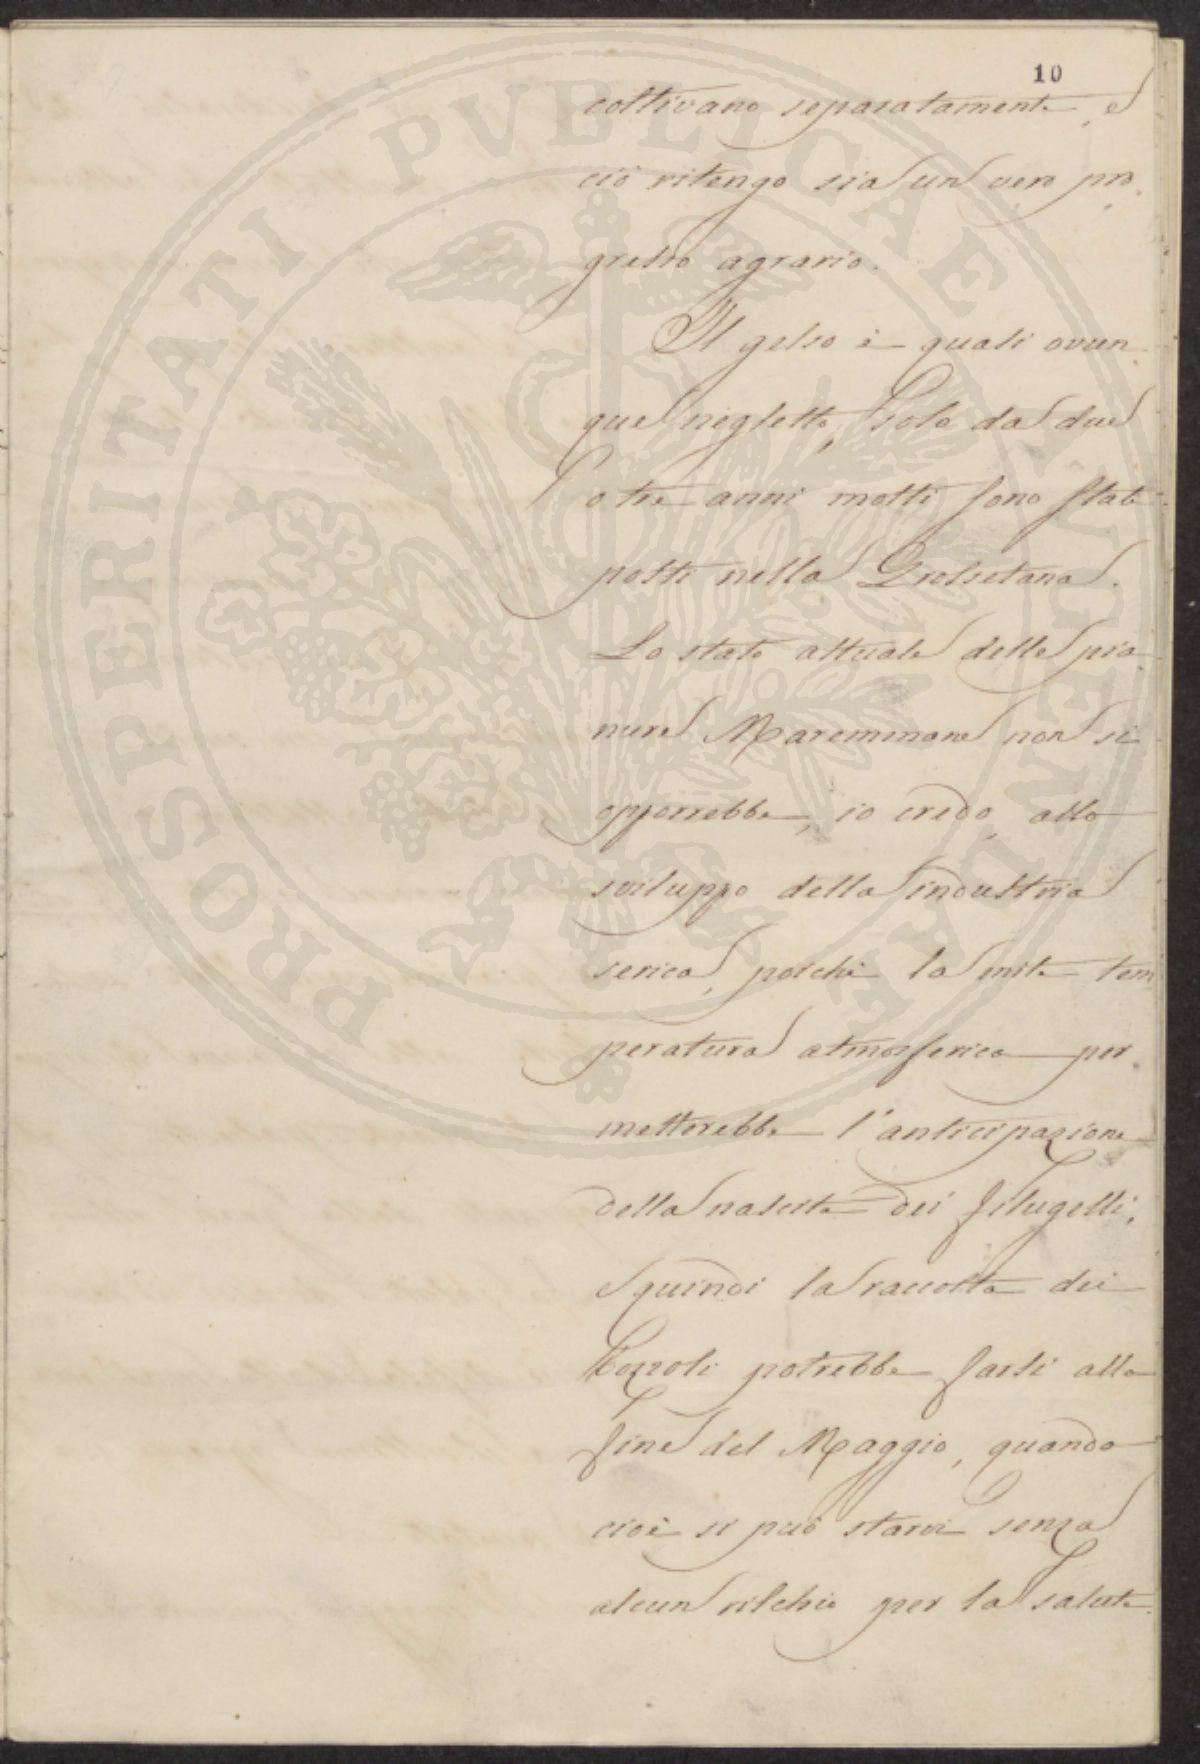 10
coltivano separatamente, e
ciò ritengo sia un vero pro-
gresso agrario.
Il gelso è quasi ovun-
que negletto, solo da due
o tre anni molti sono stati
posti nella Grossetana.
Lo stato attuale delle pia-
nure Maremmane non si
opporrebbe, io credo, allo
sviluppo della industria
serica, poichè la mite tem
peratura atmosferica per-
metterebbe l'anticipazione
della nascita dei filugelli,
e quindi la raccolta dei
bozzoli potrebbe farsi alla
fine del Maggio, quando
cioè si può starvi senza
alcun rischio per la salute.
PROSPERITATI PVBLICAE AVGENDAE